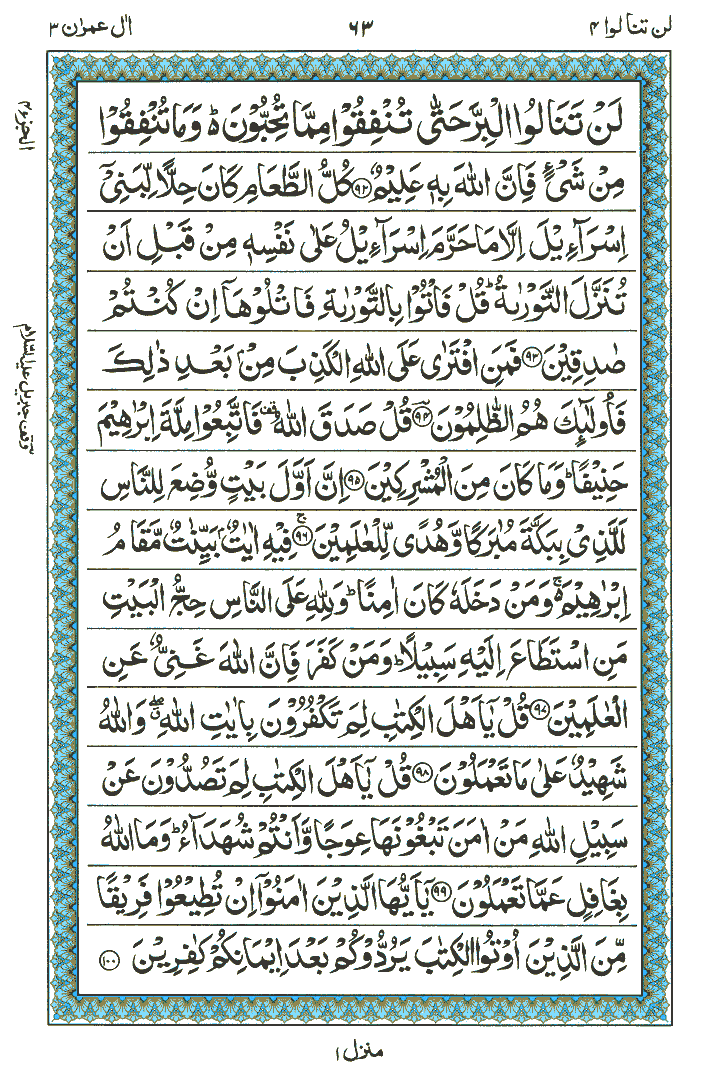 لن تنالوا ۴
۶۳
اٰل عمرٰن ۳
لَنْ تَنَالُوا الْبِرَّ حَتّٰی تُنْفِقُوْا مِمَّا تُحِبُّوْنَ ؕ۬ وَمَا تُنْفِقُوْا
مِنْ شَیْءٍ فَاِنَّ اللّٰهَ بِهٖ عَلِیْمٌ ﴿۹۲﴾ كُلُّ الطَّعَامِ كَانَ حِلًّا لِّبَنِیْۤ
اِسْرَآءِیْلَ اِلَّا مَا حَرَّمَ اِسْرَآءِیْلُ عَلٰی نَفْسِهٖ مِنْ قَبْلِ اَنْ
تُنَزَّلَ التَّوْرٰىةُ ؕ قُلْ فَاْتُوْا بِالتَّوْرٰىةِ فَاتْلُوْهَاۤ اِنْ كُنْتُمْ
صٰدِقِیْنَ ﴿۹۳﴾ فَمَنِ افْتَرٰی عَلَی اللّٰهِ الْكَذِبَ مِنْۢ بَعْدِ ذٰلِكَ
فَاُولٰٓىِٕكَ هُمُ الظّٰلِمُوْنَ ﴿۹۴﴾ قُلْ صَدَقَ اللّٰهُ ۫ فَاتَّبِعُوْا مِلَّةَ اِبْرٰهِیْمَ
حَنِیْفًا ؕ وَمَا كَانَ مِنَ الْمُشْرِكِیْنَ ﴿۹۵﴾ اِنَّ اَوَّلَ بَیْتٍ وُّضِعَ لِلنَّاسِ
لَلَّذِیْ بِبَكَّةَ مُبٰرَكًا وَّهُدًی لِّلْعٰلَمِیْنَ ﴿۹۶﴾ۚ فِیْهِ اٰیٰتٌۢ بَیِّنٰتٌ مَّقَامُ
اِبْرٰهِیْمَ ۚ۬ وَمَنْ دَخَلَهٗ كَانَ اٰمِنًا ؕ وَلِلّٰهِ عَلَی النَّاسِ حِجُّ الْبَیْتِ
مَنِ اسْتَطَاعَ اِلَیْهِ سَبِیْلًا ؕ وَمَنْ كَفَرَ فَاِنَّ اللّٰهَ غَنِیٌّ عَنِ
الْعٰلَمِیْنَ ﴿۹۷﴾ قُلْ یٰۤاَهْلَ الْكِتٰبِ لِمَ تَكْفُرُوْنَ بِاٰیٰتِ اللّٰهِ ۖۗ وَاللّٰهُ
شَهِیْدٌ عَلٰی مَا تَعْمَلُوْنَ ﴿۹۸﴾ قُلْ یٰۤاَهْلَ الْكِتٰبِ لِمَ تَصُدُّوْنَ عَنْ
سَبِیْلِ اللّٰهِ مَنْ اٰمَنَ تَبْغُوْنَهَا عِوَجًا وَّاَنْتُمْ شُهَدَآءُ ؕ وَمَا اللّٰهُ
بِغَافِلٍ عَمَّا تَعْمَلُوْنَ ﴿۹۹﴾ یٰۤاَیُّهَا الَّذِیْنَ اٰمَنُوْۤا اِنْ تُطِیْعُوْا فَرِیْقًا
مِّنَ الَّذِیْنَ اُوْتُوا الْكِتٰبَ یَرُدُّوْكُمْ بَعْدَ اِیْمَانِكُمْ كٰفِرِیْنَ ﴿۱۰۰﴾
الجزء ۴
وقف جبریل علیہ السّلام
منزل ۱